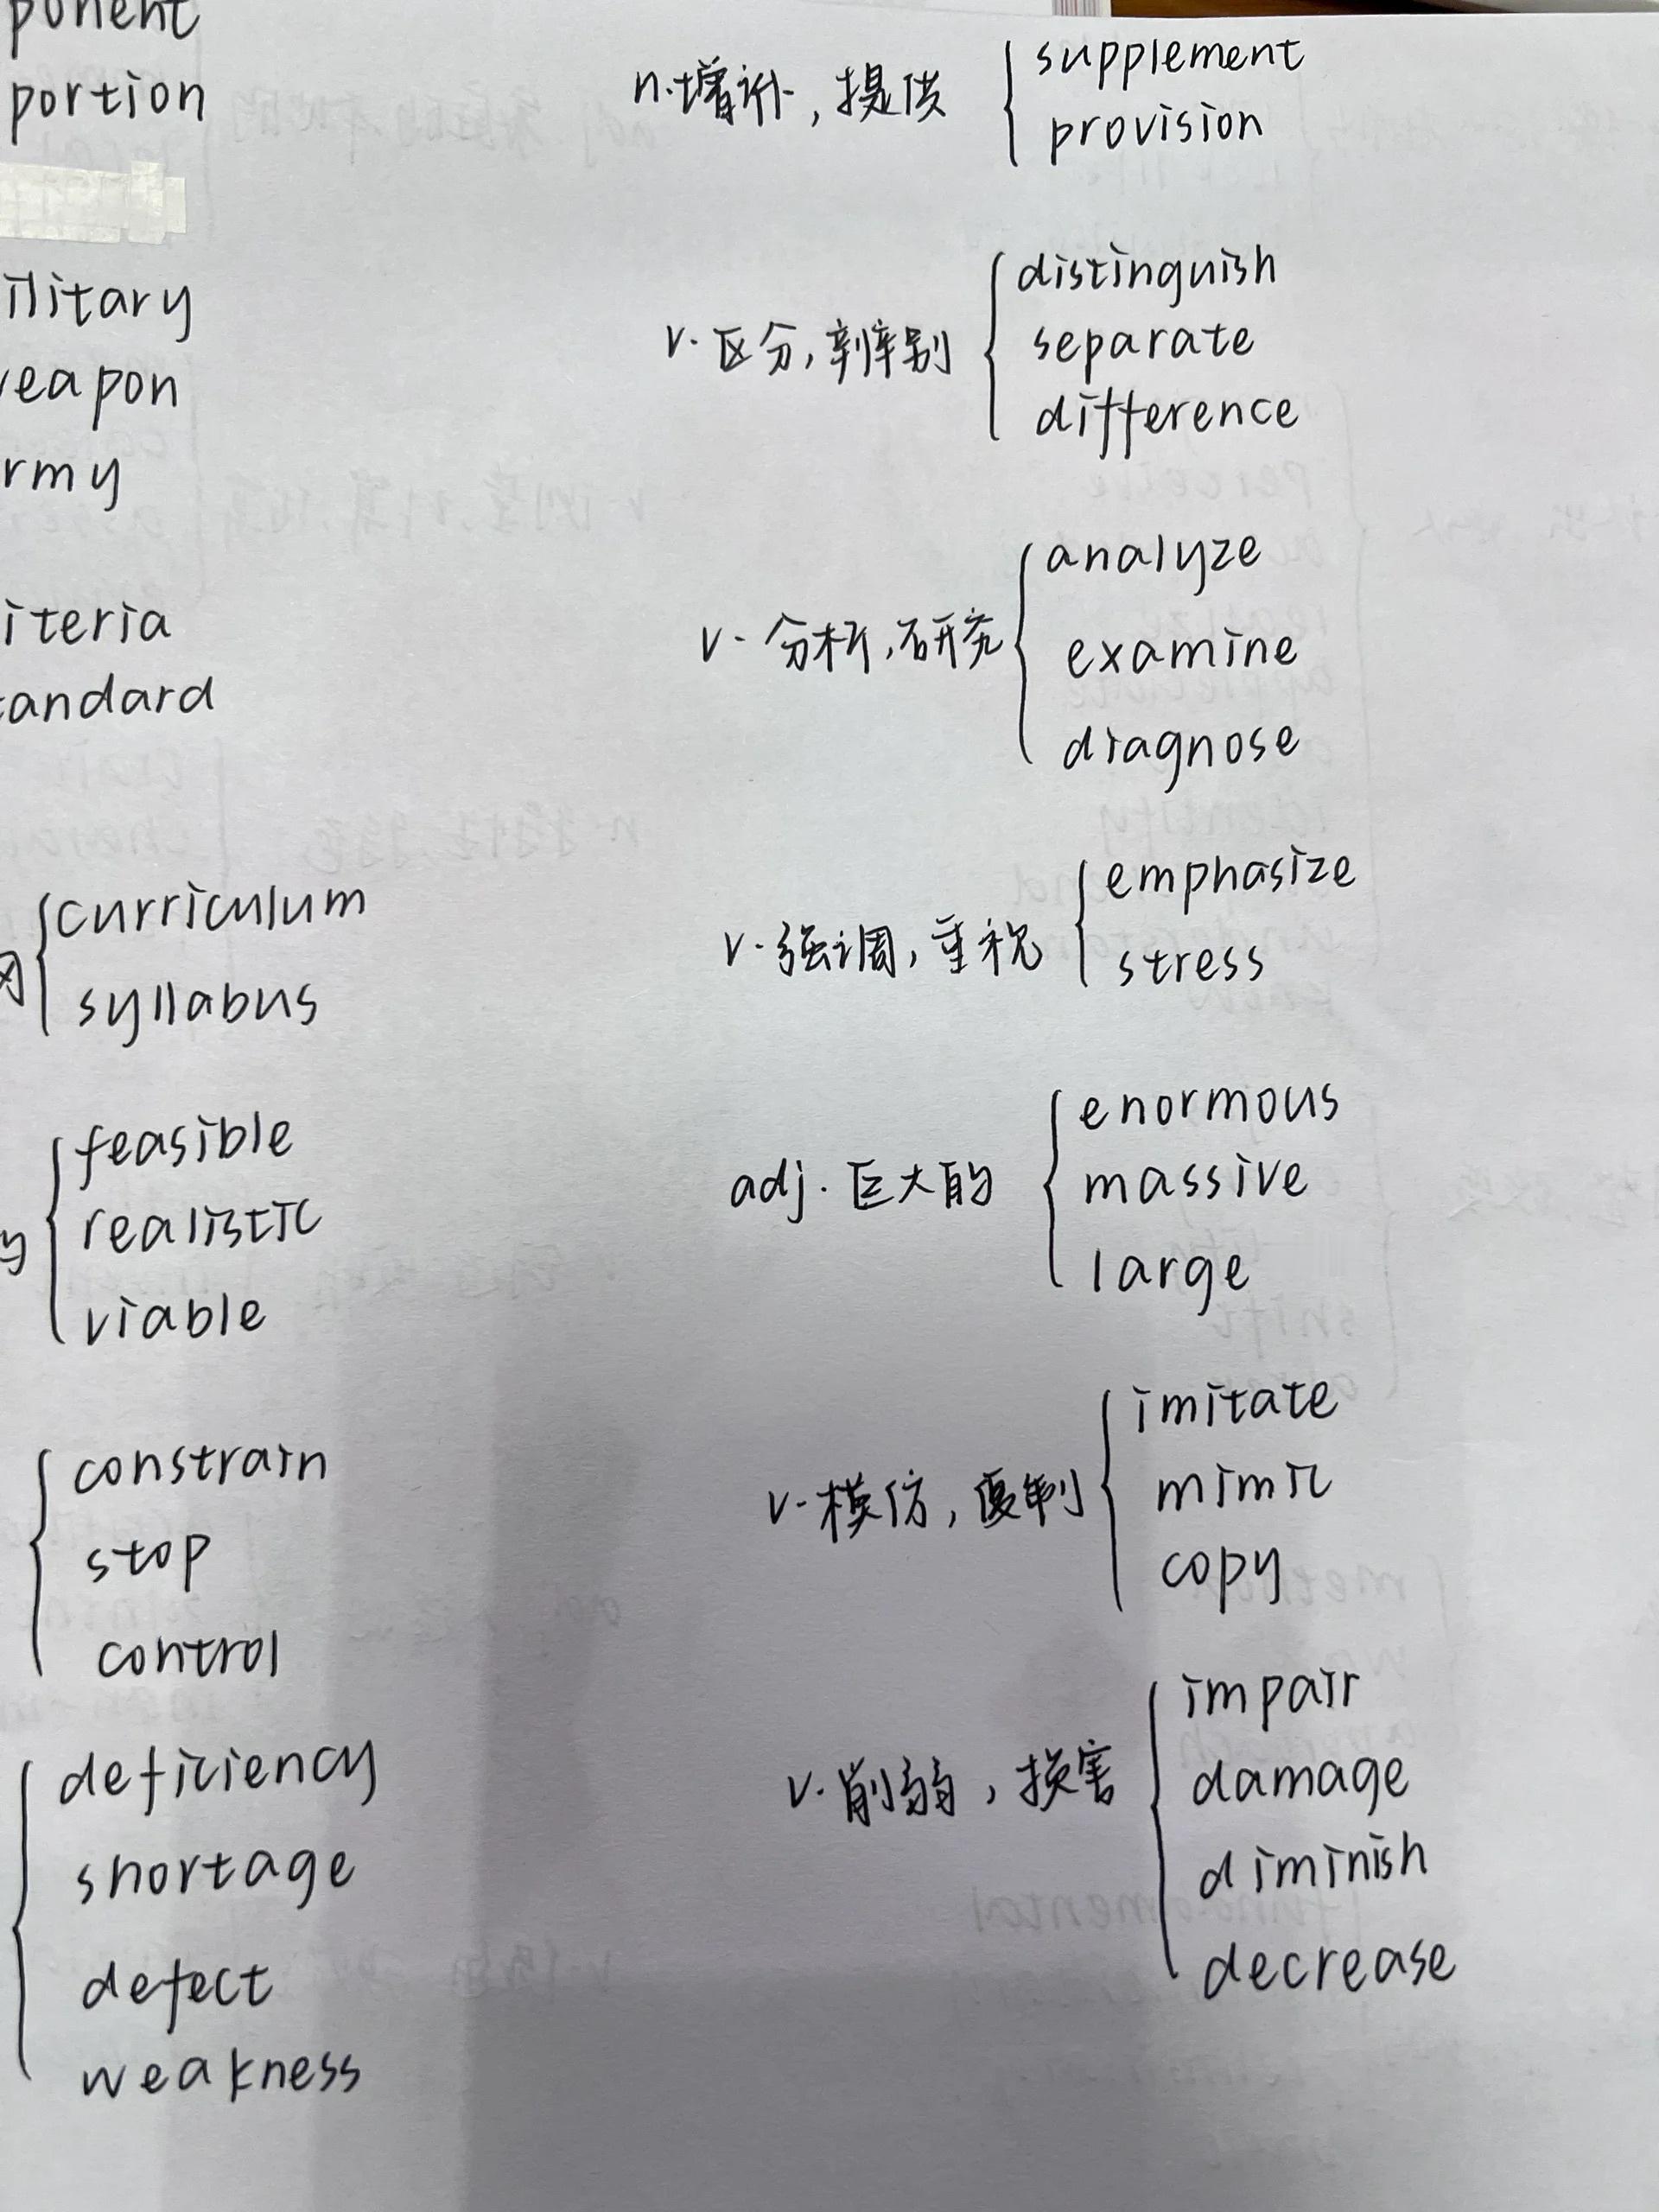 ponent
portion
ilitary
weapon
rmy
iteria
tandard
curriculum
syllabus
feasible
realistic
viable
constrain
stop
control
deficiency
shortage
defect
weakness
n.增补,提供
supplement
provision
v.区分,辨别
distinguish
separate
difference
v.分析,研究
analyze
examine
diagnose
v.强调,重视
emphasize
stress
adj.巨大的
enormous
massive
large
v.模仿,复制
imitate
mimic
copy
v.削弱,损害
impair
damage
diminish
decrease